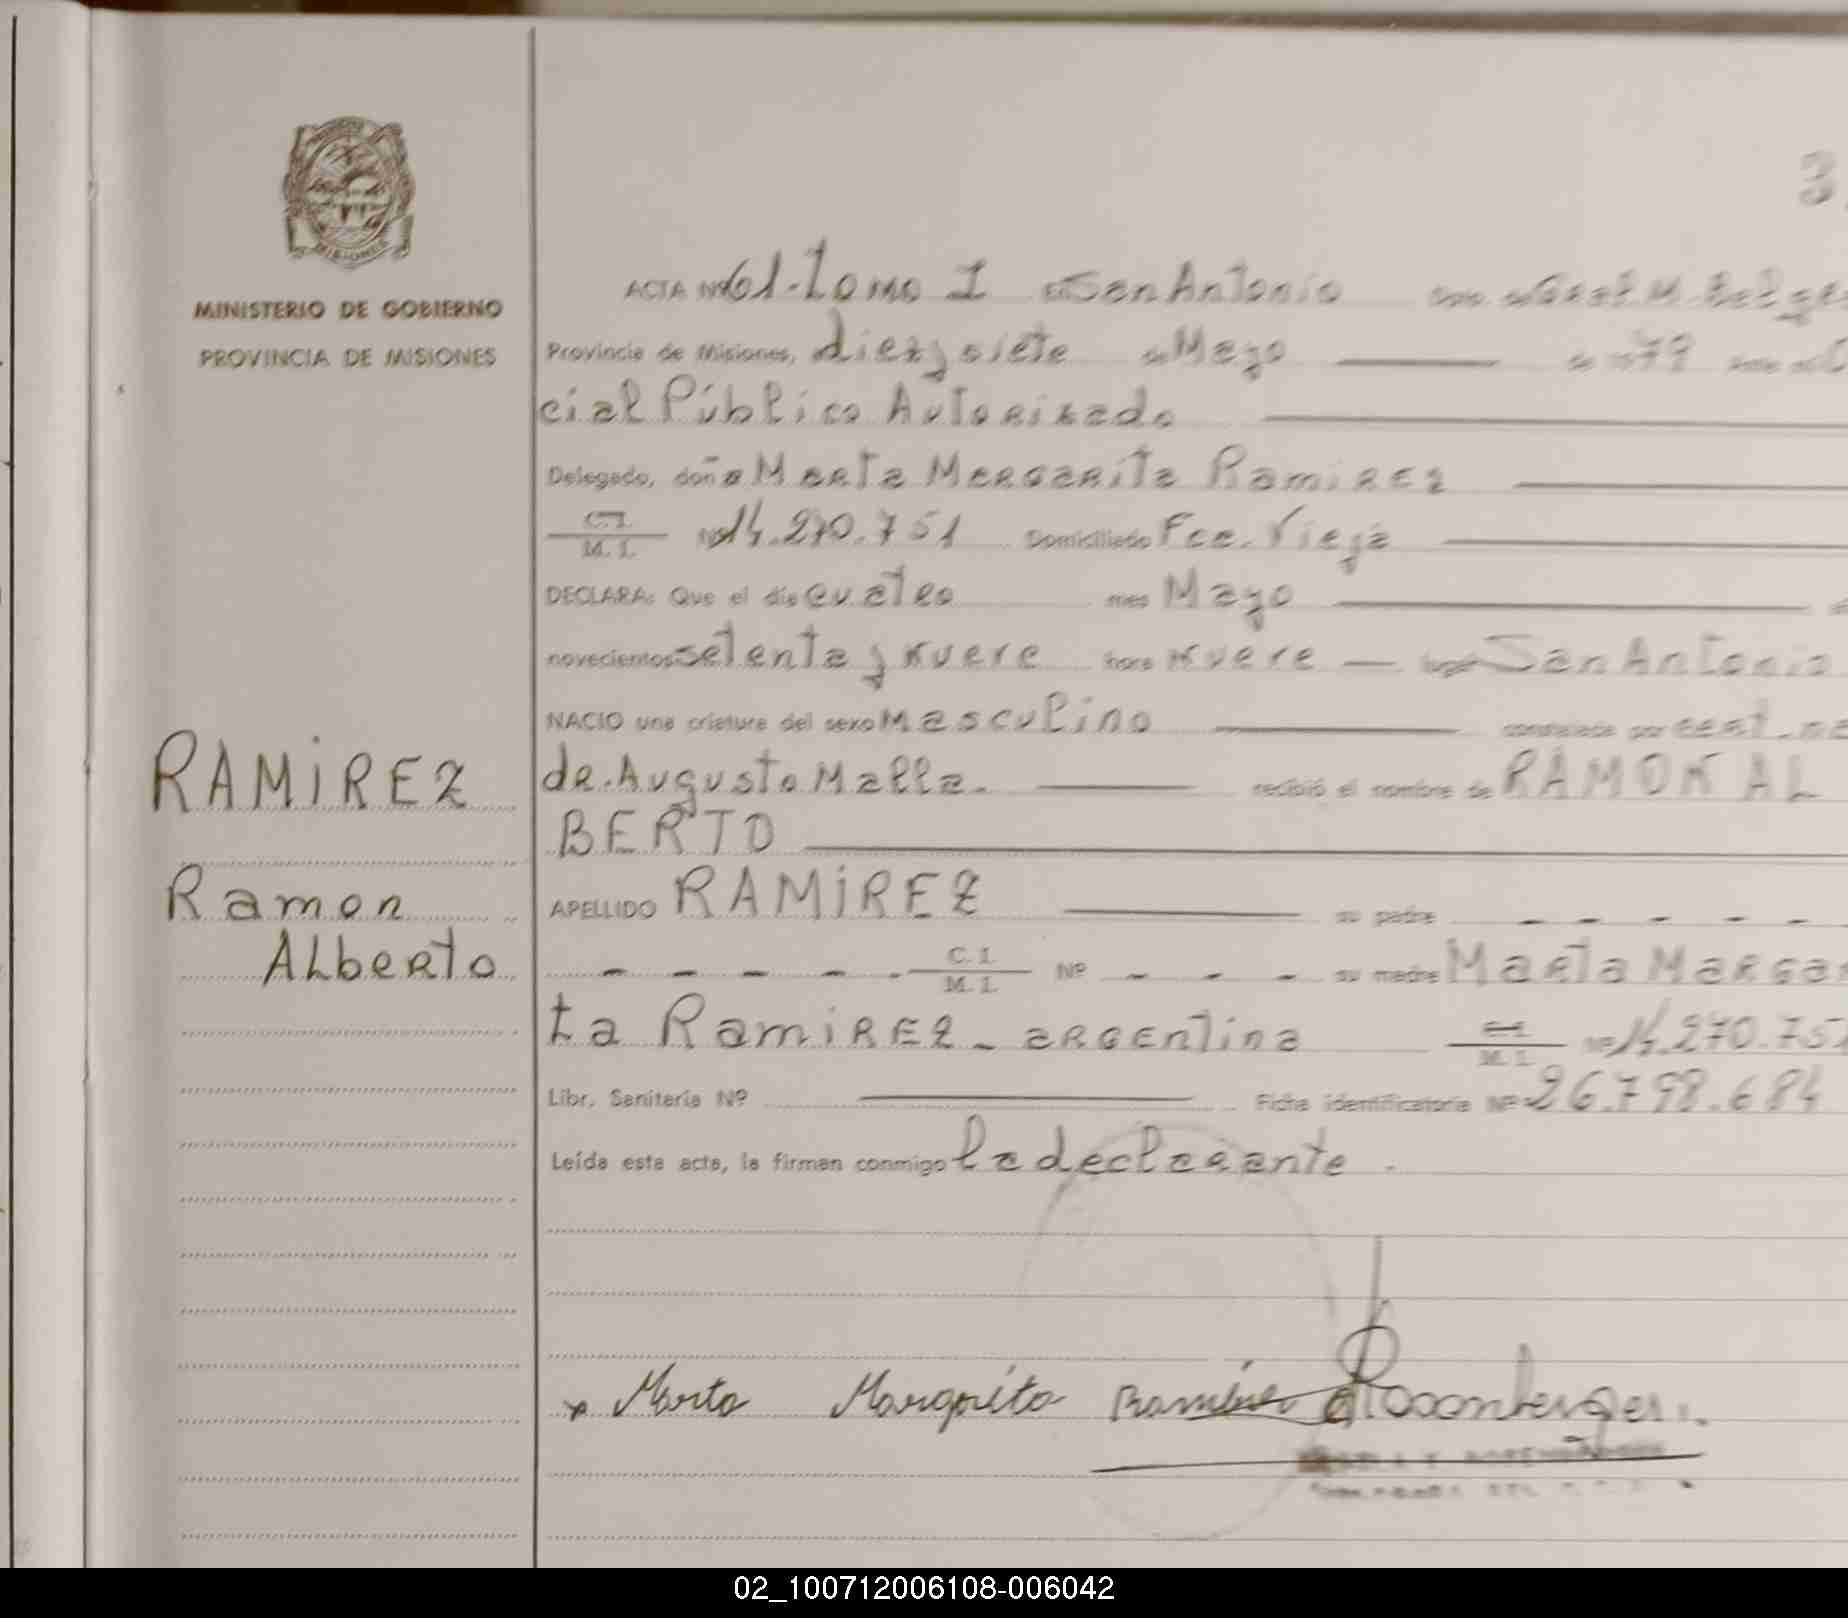 3
MISIONES
MINISTERIO DE GOBIERNO
PROVINCIA DE MISIONES
RAMIREZ
Ramon
ALberto
ACTA Nº 61-Tomo I En San Antonio Dpto. de Gral M. Belgr
Provincia de Misiones, diez y siete de Mayo de 1979 Ante mí O
cial Público Autorizado
Delegado, doña Marta Margarita Ramirez
C. I.
M. I. Nº 14.270.751 Domiciliado Fca. Vieja
DECLARA: Que el día cuatro mes Mayo
novecientos setenta y nueve hora nueve lugar San Antonio
NACIO una criatura del sexo masculino constatado por cert. 
de. Augusto Malla. recibió el nombre de RAMON AL
BERTO
APELLIDO RAMIREZ su padre - - - - -
- - - - - C. I.
M. I. Nº - - - su madre Marta Margar
ta Ramirez - argentina C. I.
M. I. Nº 14.270.751
Libr. Sanitaria Nº Ficha identificatoria Nº 26.798.684
Leída este acta, la firman conmigo la declarante .
x Marta Margarita Ramirez
02_100712006108-006042